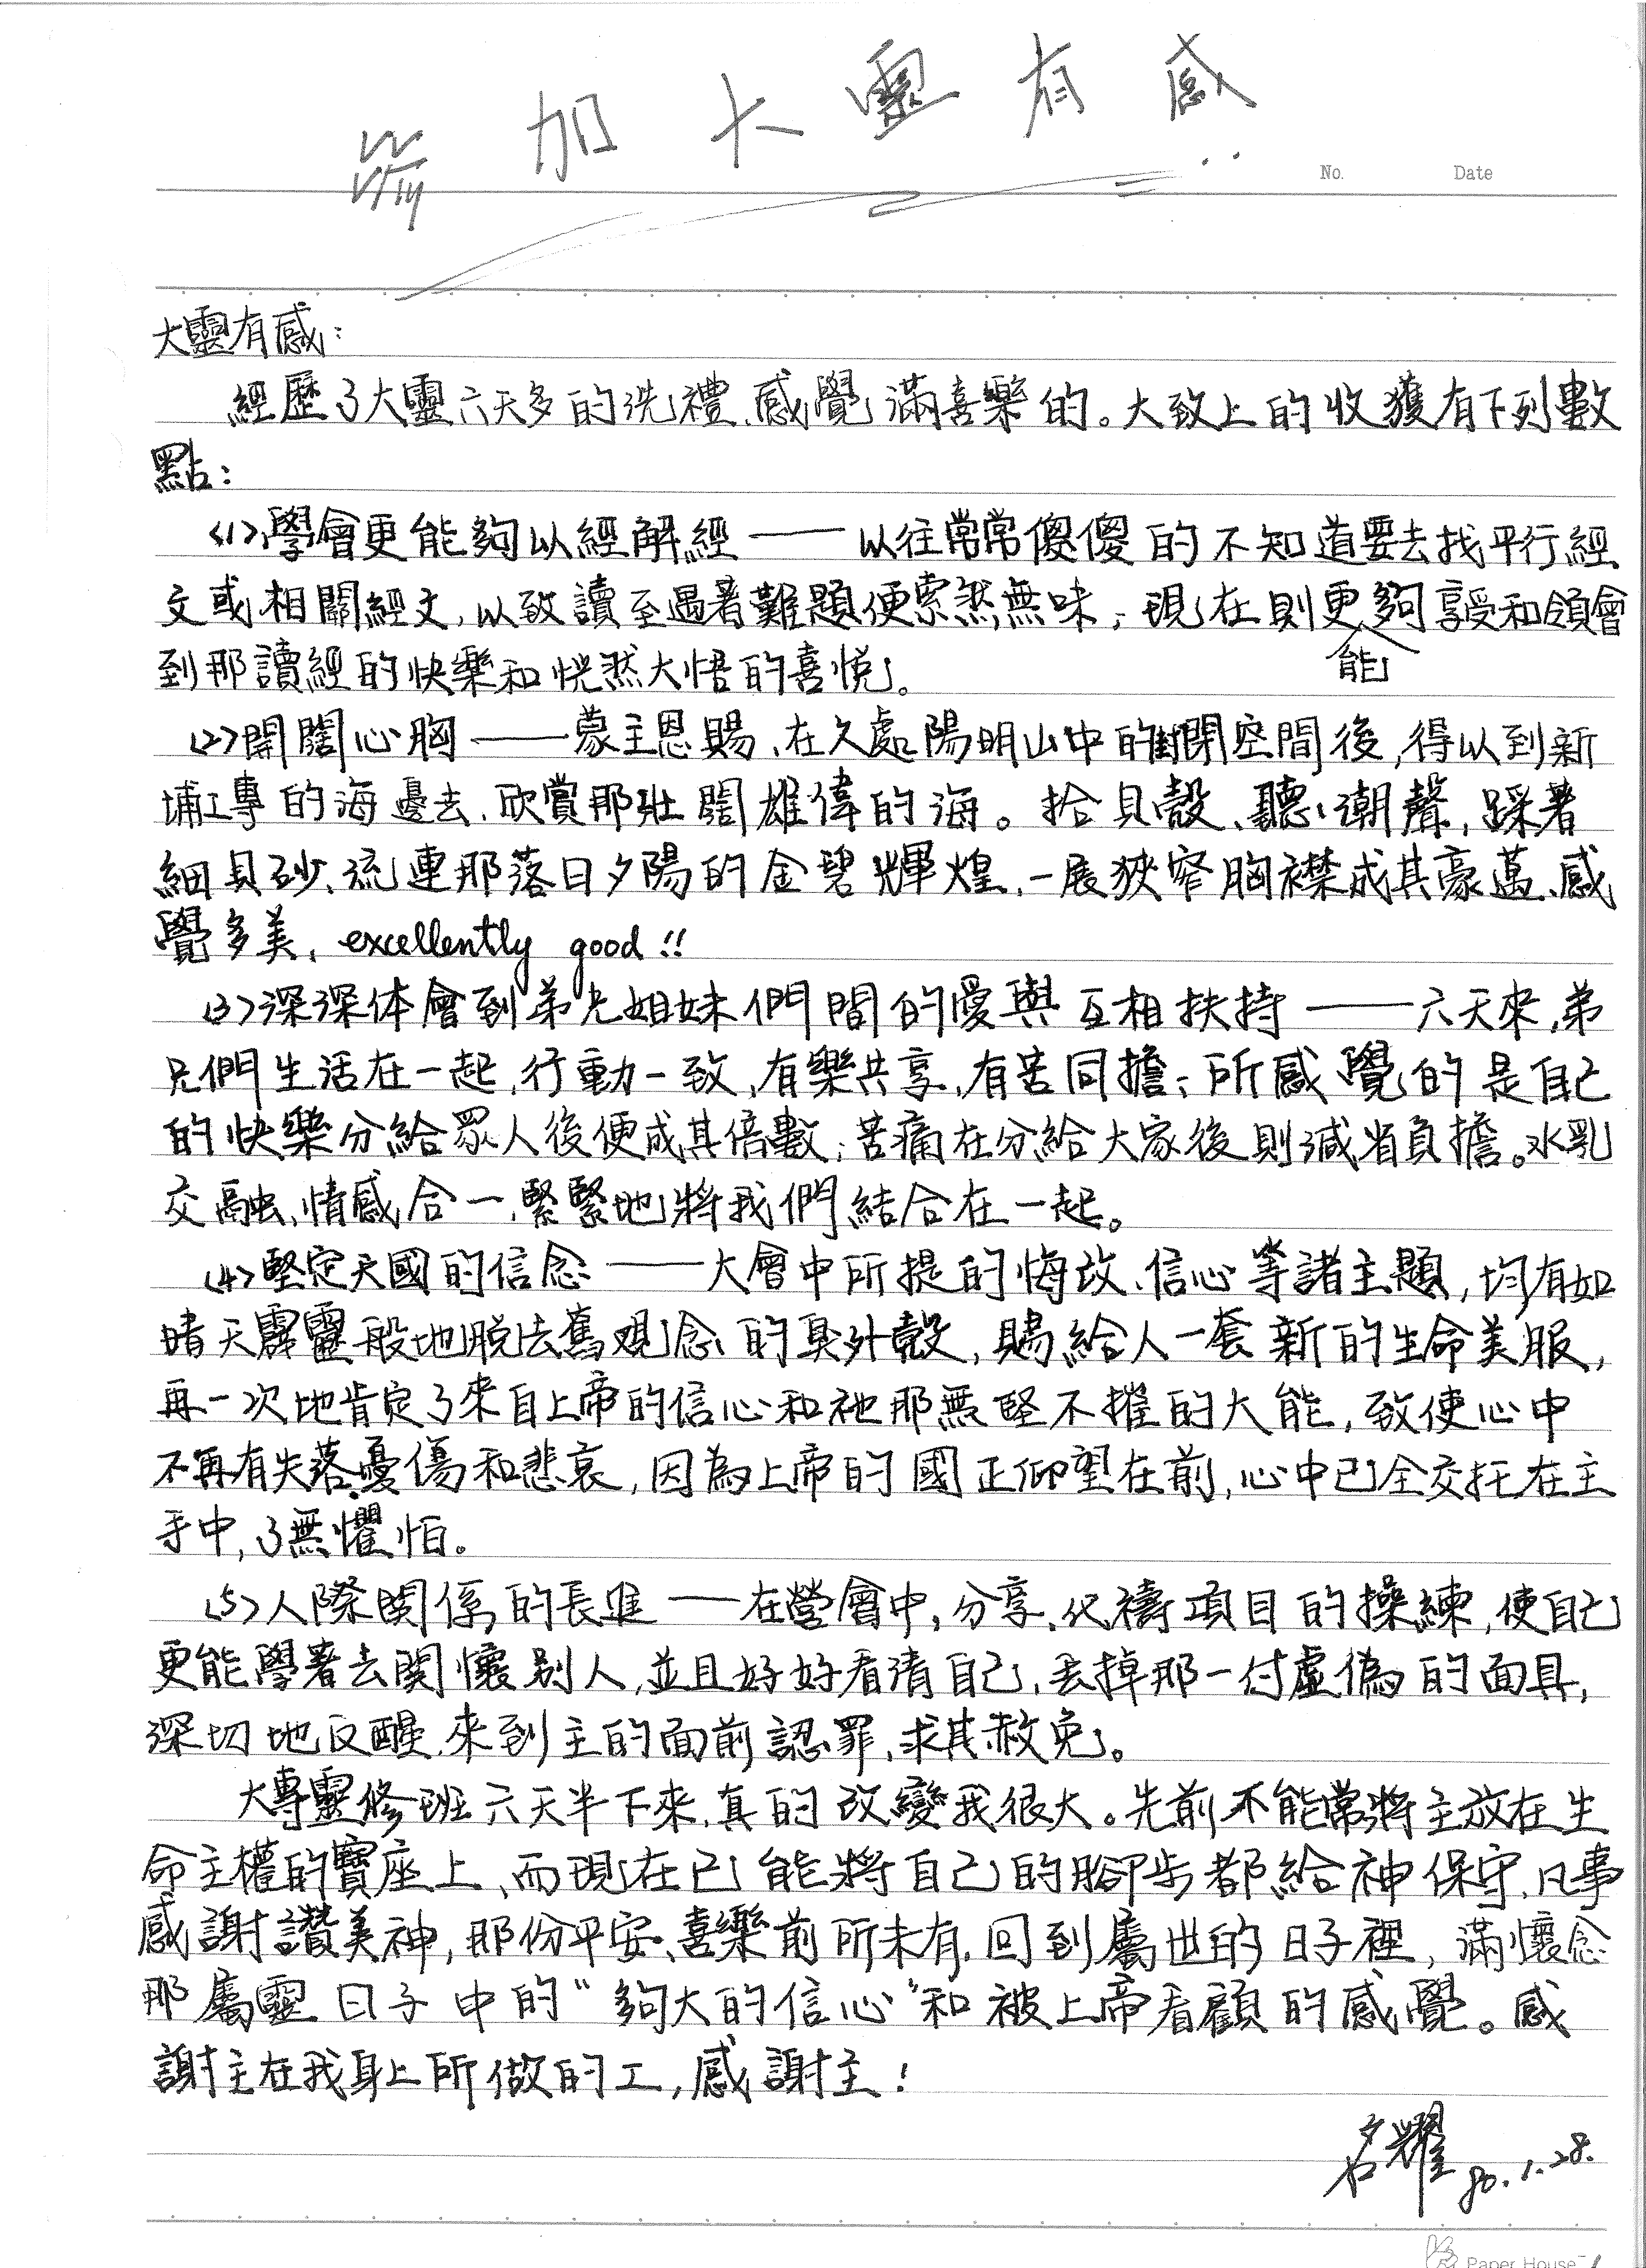 參加大靈有感
No. Date
大靈有感：
經歷了大靈六天多的洗禮、感覺滿喜樂的。大致上的收獲有下列數
點：
(1)學會更能夠以經解經——以往常常傻傻的不知道要去找平行經
文或相關經文，以致讀至遇著難題便索然無味；現在則更能夠享受和領會
到那讀經的快樂和恍然大悟的喜悅。
(2)開闊心胸——蒙主恩賜、在久處陽明山中的封閉空間後，得以到新
埔工專的海邊去、欣賞那壯闊雄偉的海。拾貝殼、聽潮聲，踩著
細貝砂、流連那落日夕陽的金碧輝煌、一展狹窄胸襟成其豪邁、感
覺多美、excellently good!!
(3)深深体會到弟兄姐妹們間的愛與互相扶持——六天來，弟
兄們生活在一起，行動一致，有樂共享，有苦同擔；所感覺的是自己
的快樂分給眾人後便成其倍數；苦痛在分給大家後則減省負擔。水乳
交融、情感合一、緊緊地將我們結合在一起。
(4)堅定天國的信念——大會中所提的悔改、信心等諸主題，均有如
晴天霹靂般地脫去舊觀念的臭外殼，賜給人一套新的生命美服，
再一次地肯定了來自上帝的信心和祂那無堅不摧的大能，致使心中
不再有失落、憂傷和悲哀，因為上帝的國正仰望在前，心中已全交托在主
手中，了無懼怕。
(5)人際関係的長進——在營會中，分享、代禱項目的操練，使自己
更能學著去関懷別人，並且好好看清自己、丟掉那一付虛偽的面具，
深切地反醒、來到主的面前認罪、求其赦免。
大專靈修班六天半下來、真的改變我很大。先前不能常將主放在生
命主權的寶座上、而現在已能將自己的腳步都給神保守、凡事
感謝讚美神，那份平安、喜樂前所未有．回到屬世的日子裡，滿懷念
那屬靈日子中的“夠大的信心”和被上帝看顧的感覺。感
謝主在我身上所做的工，感謝主！
名耀 80.1.28.
Paper House